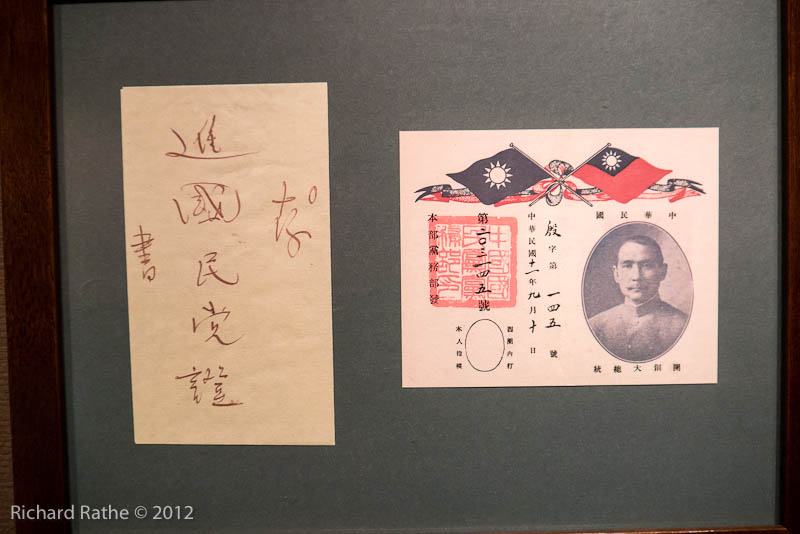 存
進國民党證
書
中華民國
開創大總統
殷字第一四五號
中華民國十一年九月十日
第二〇二一四五號
本部黨務部發
圓圈內打
本人指模
Richard Rathe © 2012